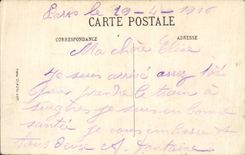 Paris le 19-4-1916
CARTE POSTALE
CORRESPONDANCE ADRESSE
Ma chère Elise
Je suis arrivé assez tôt
pour prendre le train à
je suis en bonne
santé je vous embrasse
tous deux A. Fontaine